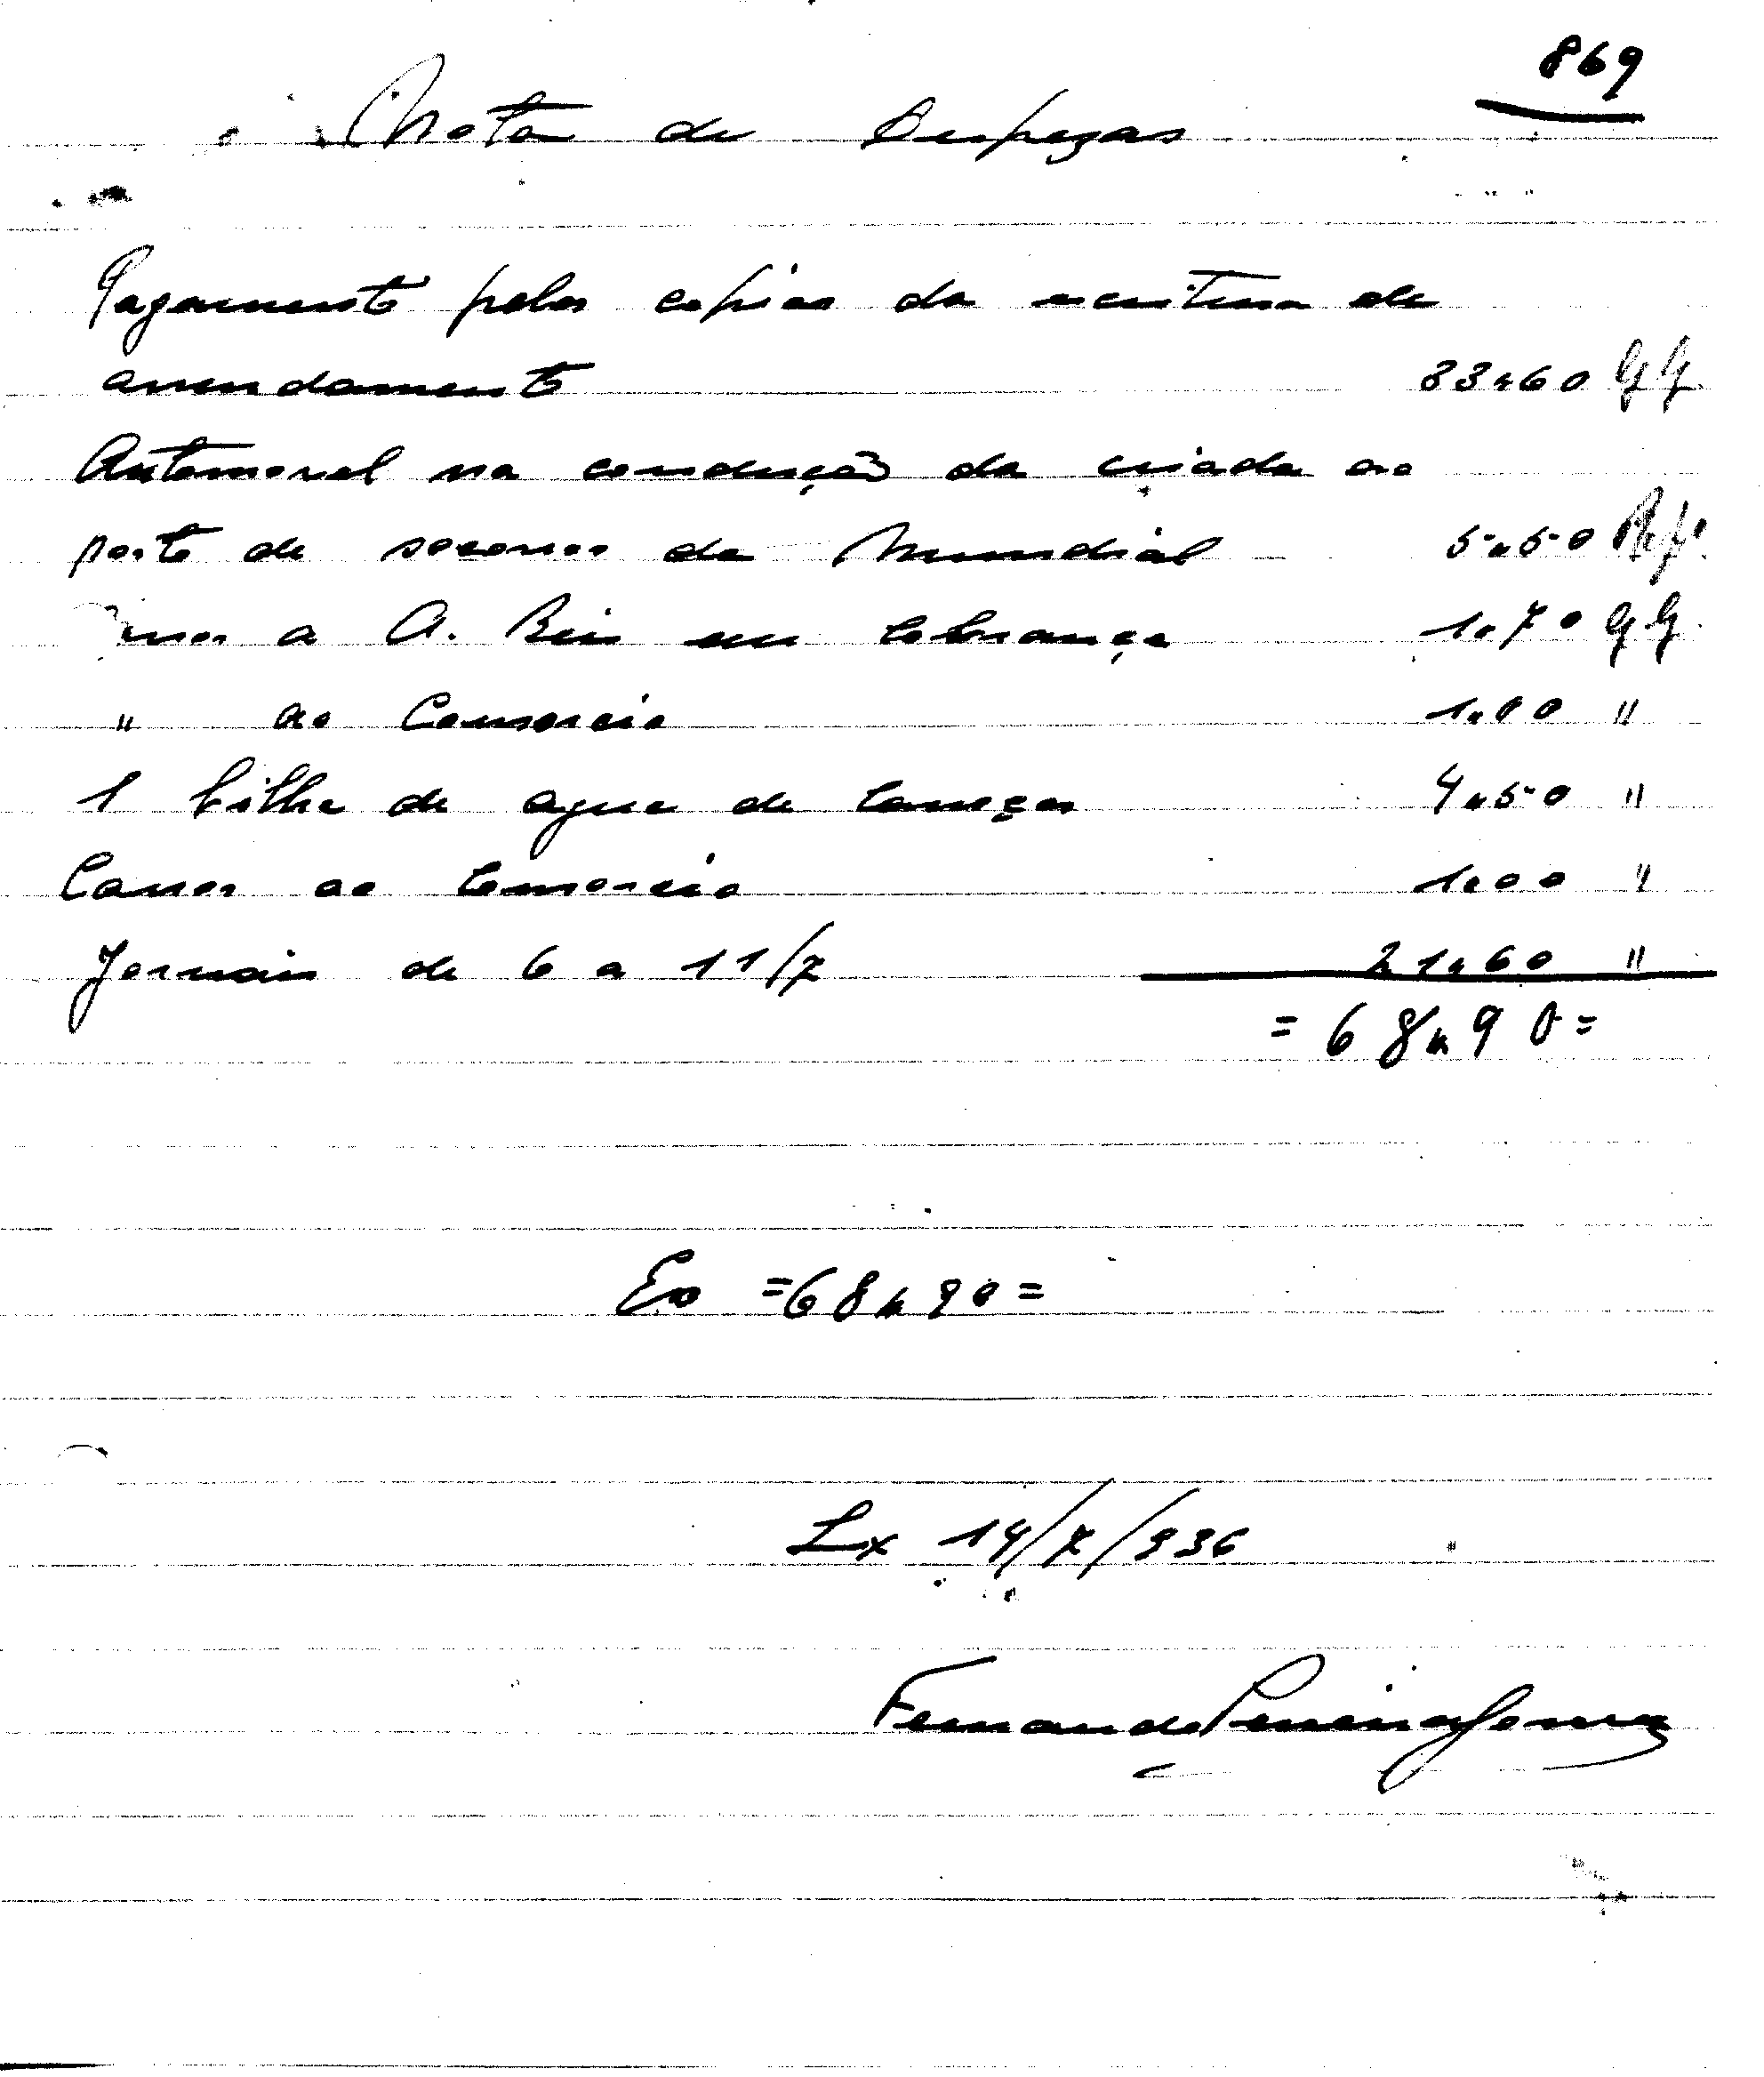 869
Nota de Despezas
Pagamento pelas copias da escritura de
arrendamento 33$60 GG
Automovel na condução da criada ao
posto de socorros da Mundial 5$50
a A. Reis em cobrança 1$70 GG
" ao Comercio 1$00 "
1 bilha de agua de Caneças 4$50 "
Carros ao Comercio 1$00 "
Jornais de 6 a 11/7 21$60 "
= 68$90 =
Es = 68$90 =
Lx 14/7/936
Fernando Pereira